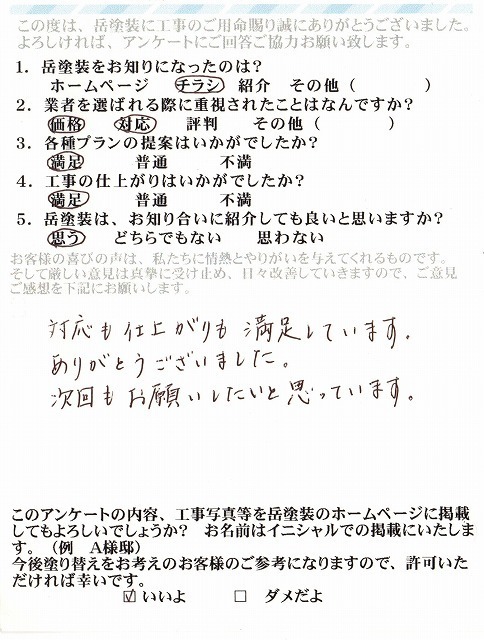 この度は、岳塗装に工事のご用命賜り誠にありがとうございました。
よろしければ、アンケートにご回答ご協力お願い致します。
1．岳塗装をお知りになったのは？
ホームページ　チラシ　紹介　その他（　　　　）
2．業者を選ばれる際に重視されたことはなんですか？
価格　対応　評判　その他（　　　　）
3．各種プランの提案はいかがでしたか？
満足　普通　不満
4．工事の仕上がりはいかがでしたか？
満足　普通　不満
5．岳塗装は、お知り合いに紹介しても良いと思いますか？
思う　どちらでもない　思わない
お客様の喜びの声は、私たちに情熱とやりがいを与えてくれるものです。
そして厳しい意見は真摯に受け止め、日々改善していきますので、ご意見
ご感想を下記にお願いします。
対応も仕上がりも満足しています。
ありがとうございました。
次回もお願いしたいと思っています。
このアンケートの内容、工事写真等を岳塗装のホームページに掲載
してもよろしいでしょうか？　お名前はイニシャルでの掲載にいたしま
す。（例　A様邸）
今後塗り替えをお考えのお客様のご参考になりますので、許可いた
だければ幸いです。
☑ いいよ　□ ダメだよ